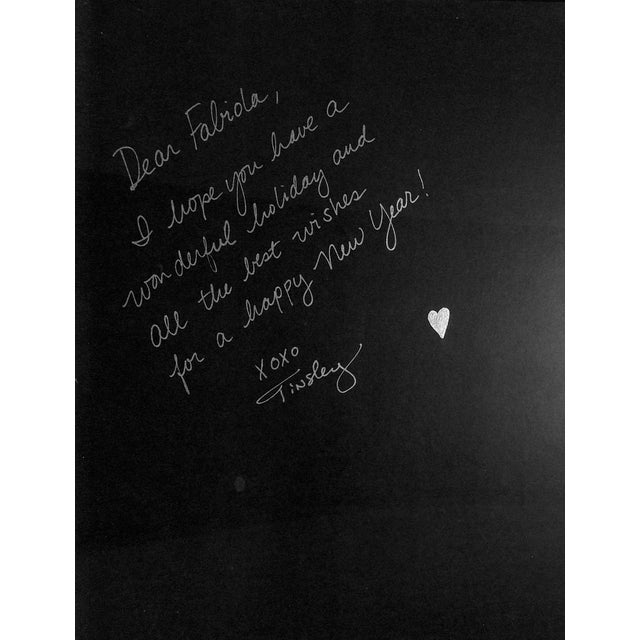 Dear Fabiola,
I hope you have a
wonderful holiday and
all the best wishes
for a happy New Year!
XOXO
Tinsley